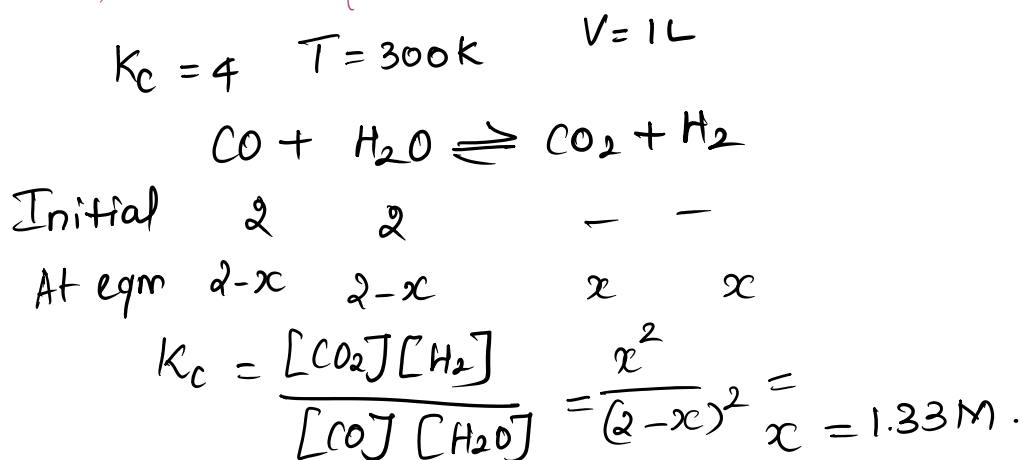 Kc = 4 T = 300K V = 1L
CO + H2O ⇌ CO2 + H2
Initial 2 2 – –
At eqm 2-x 2-x x x
Kc = [CO2][H2] / [CO][H2O] = x² / (2-x)² = x = 1.33M.